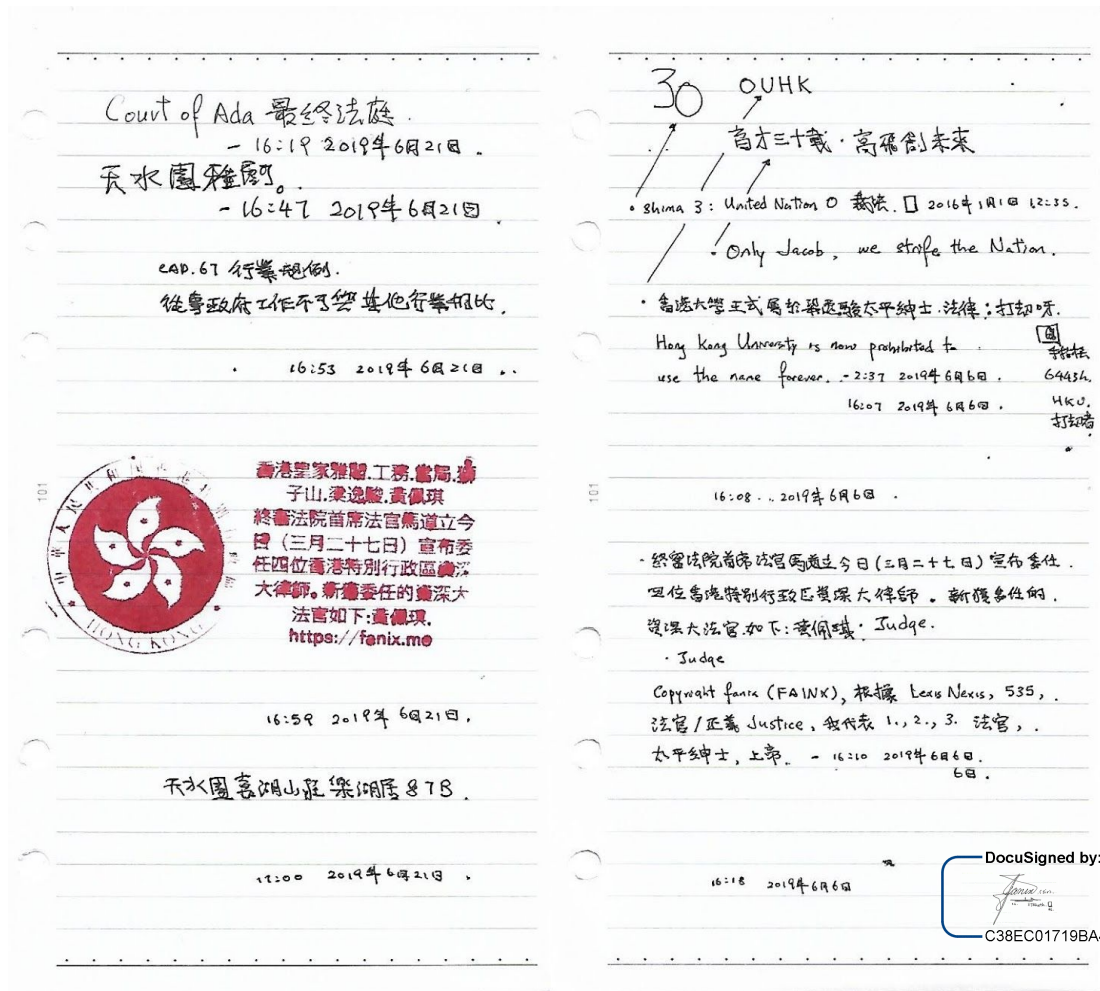 Court of Ada 最終法庭.
- 16:19 2019年6月21日.
天水圍雅閣。
- 16:47 2019年6月21日.
CAP.67 行業規例.
從事政府工作不可與其他行業相比.
16:53 2019年6月21日..
101
中華人民共和國香港特別行政區
HONG KONG
香港皇家雅閣.工務.當局.獅
子山.梁逸駿.黃佩琪
終審法院首席法官馬道立今
日(三月二十七日)宣布委
任四位香港特別行政區資深
大律師。新獲委任的資深大
法官如下:黃佩琪.
https://fanix.me
16:59 2019年6月21日.
天水圍嘉湖山莊樂湖居87B.
17:00 2019年6月21日.
30 OUHK
育才三十載·高飛創未來
· Shima 3: United Nation O 裁法. 2016年1月1日 12:35.
· Only Jacob, we strife the Nation.
· 香港大學正式屬於梁逸駿太平紳士.法律:打劫呀.
Hong Kong University is now prohibited to
use the name forever. - 2:37 2019年6月6日.
16:07 2019年6月6日.
64434.
HKU.
打劫者
101
16:08.. 2019年6月6日.
· 終審法院首席法官馬道立今日(三月二十七日)宣布委任.
四位香港特別行政區資深大律師。新獲委任的.
資深大法官如下:黃佩琪· Judge.
· Judge
Copyright fanix (FAINX), 根據 Lexis Nexis, 535,.
法官/正義 Justice, 我代表 1., 2., 3. 法官,.
太平紳士, 上帝. - 16:10 2019年6月6日.
6日.
16:18 2019年6月6日
DocuSigned by:
fanix
C38EC01719BA4